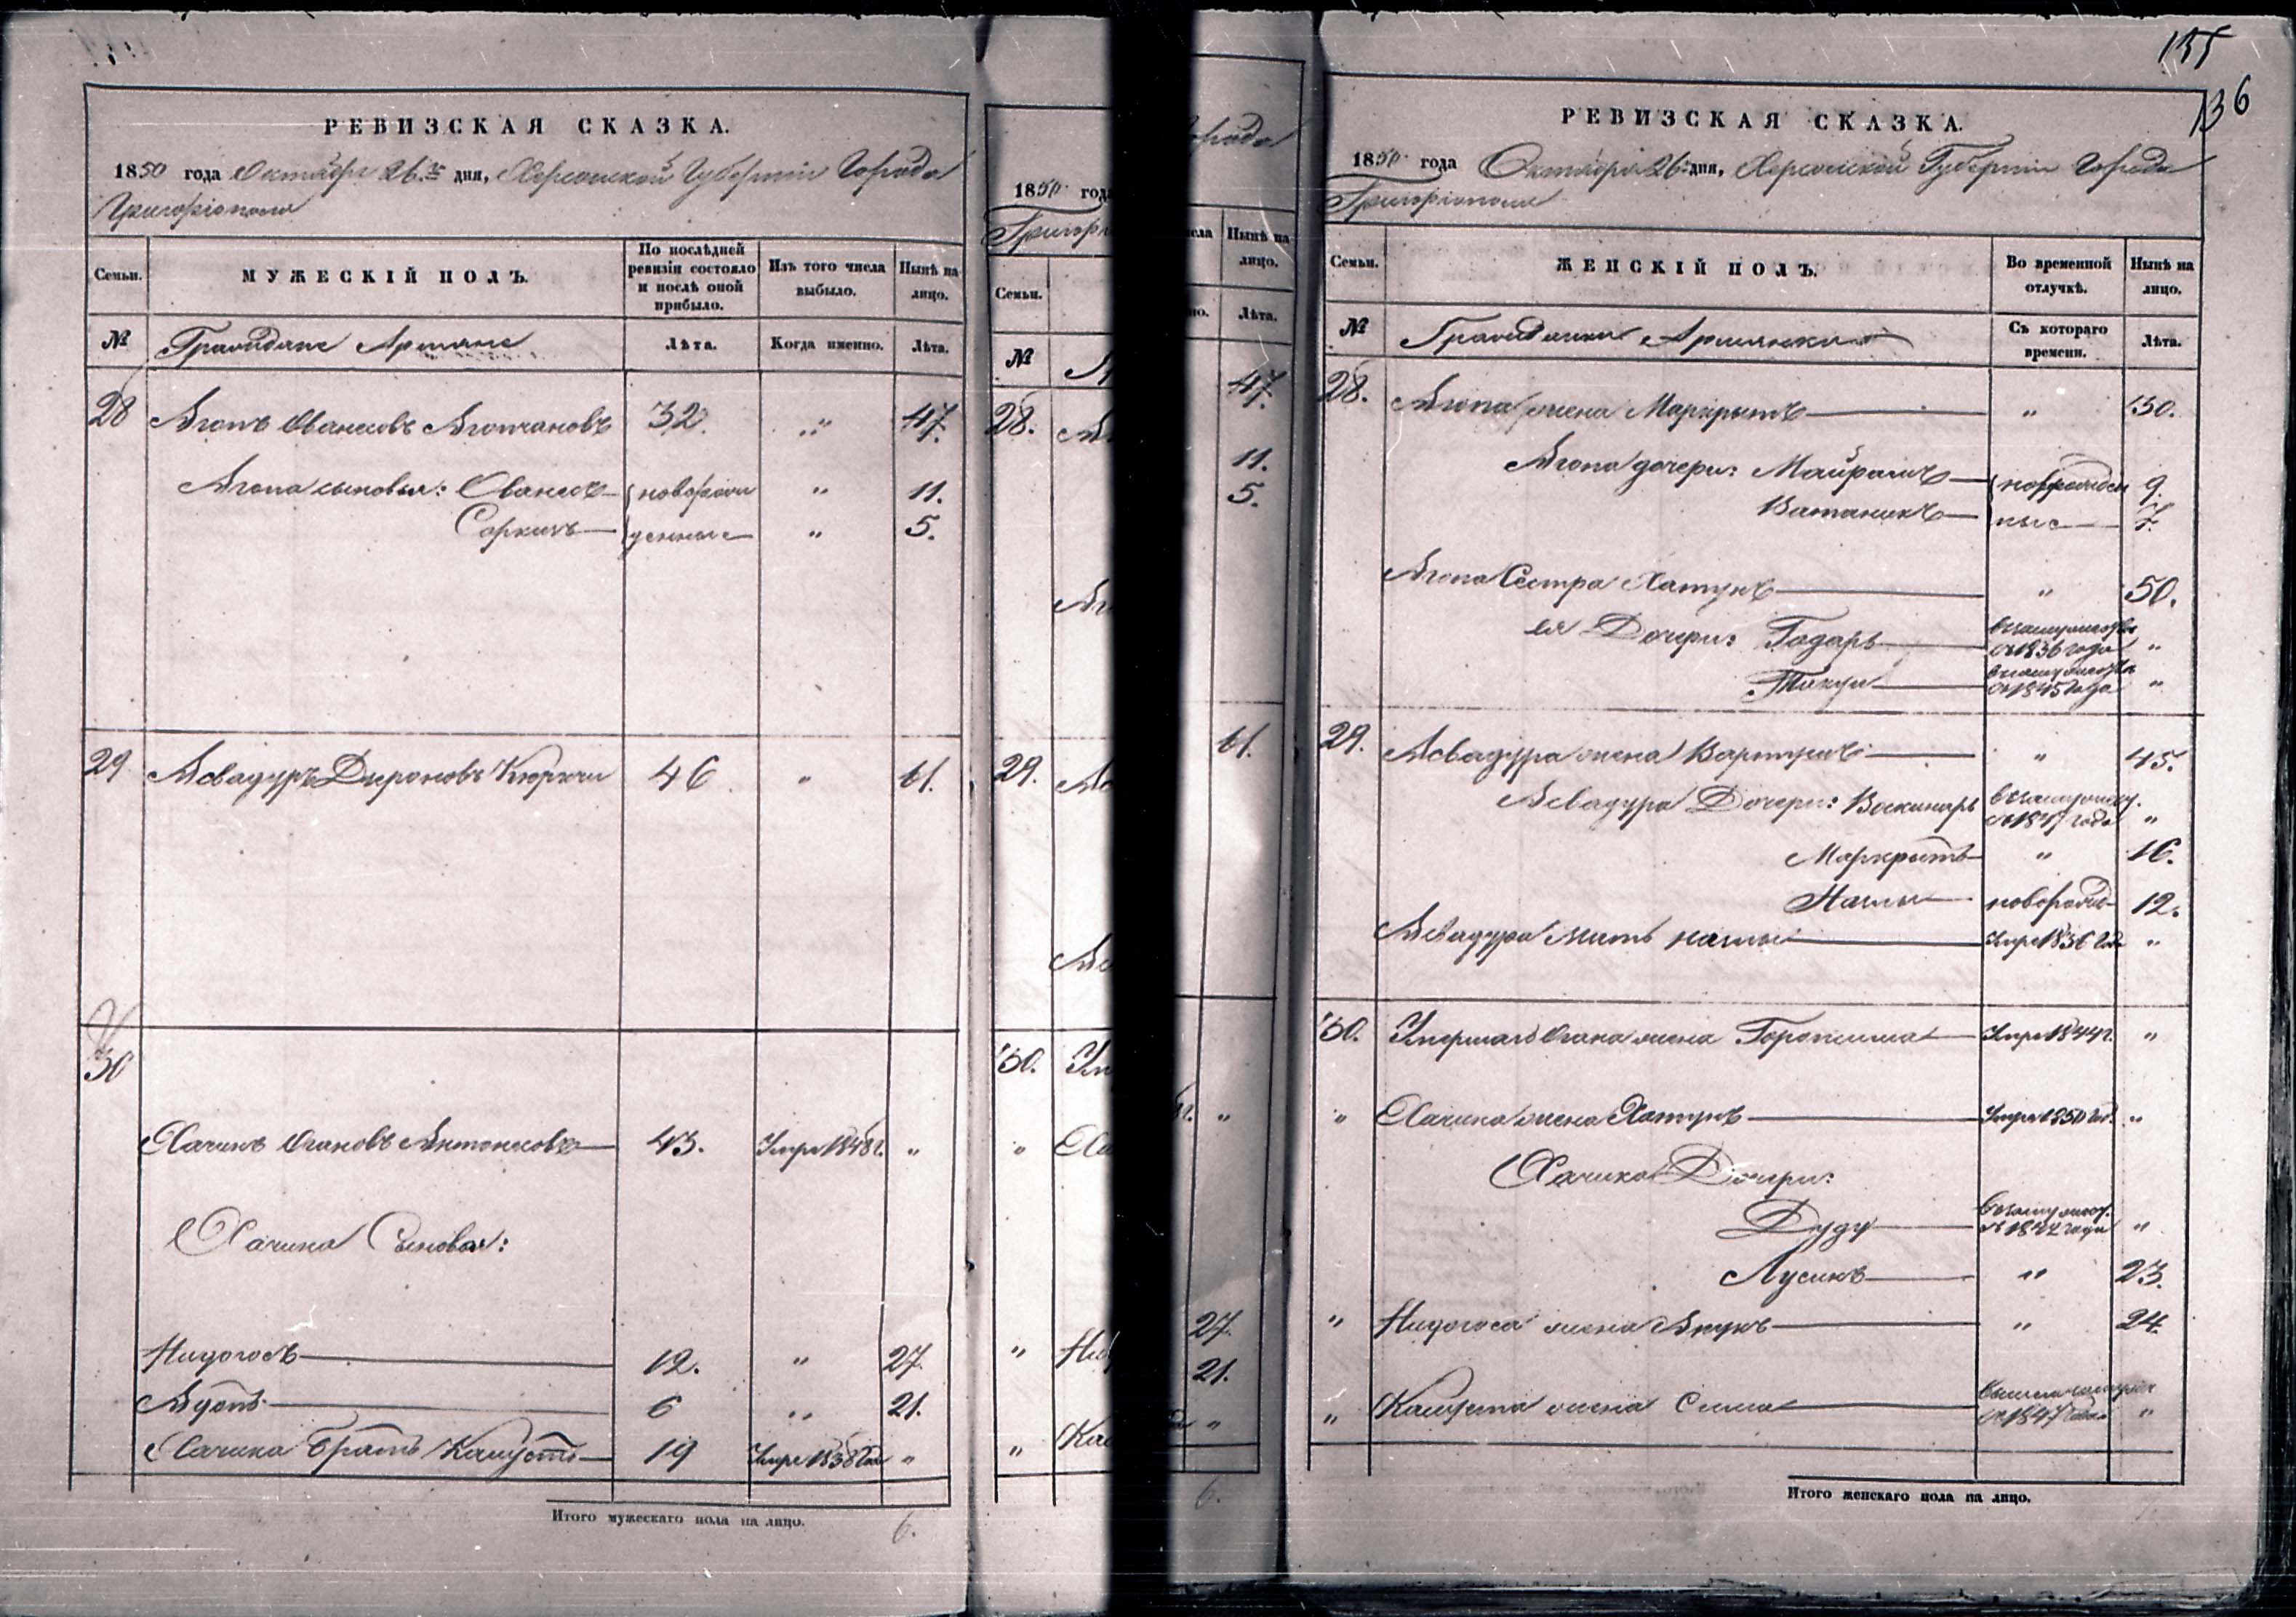 РЕВИЗСКАЯ СКАЗКА.
1850 года Октября 26.го дня, Херсонской Губернiи Города
Григорiополя
Семьи.
МУЖЕСКIЙ ПОЛЪ.
По послѣдней ревизiи состояло и послѣ оной прибыло.
Изъ того числа выбыло.
Нынѣ на лицо.
№
Граждане Армяне
Лѣта.
Когда именно.
Лѣта.
28 Агопъ Ованесовъ Агопчановъ 32. " 47.
Агопа сыновья: Ованесъ новорож " 11.
Саркисъ денные " 5.
29 Асвадуръ Дироновъ Кюркчи 46 " 61.
30
Хачикъ Огановъ Антонесовъ 43. Умре 1848 г. "
Хачика Сыновья:
Нидогосъ 12. " 27.
Агопъ 6 " 21.
Хачика братъ Капустъ 19 Умре 1838 года "
Итого мужескаго пола на лицо. 6.
Города
1850 года
Григорi
Семьи.
№
28.
29.
30.
"
"
"
Нынѣ на лицо.
Лѣта.
47.
11.
5.
61.
"
27.
21.
"
6.
155
136
РЕВИЗСКАЯ СКАЗКА.
1850 года Октября 26 дня, Херсонской Губернiи Города
Григорiополя
Семьи.
ЖЕНСКIЙ ПОЛЪ.
Во временной отлучкѣ.
Нынѣ на лицо.
№
Гражданки Армянки
Съ котораго времени.
Лѣта.
28. Агопа жена Маркрытъ " 30.
Агопа дочери: Майрамъ новорожден 9.
Ватаникъ ные 7.
Агопа Сестра Хатунъ " 50.
ея Дочери: Гадаръ въ замужествѣ съ 1836 года "
Такуи въ замужествѣ съ 1845 года "
29. Асвадура жена Вартуш " 45.
Асвадура Дочери: въ замужест. съ 1847 года "
Маркрытъ " 16.
Назлы новорожд 12.
Асвадура Мать назлы Умре 1836 год "
30. Умершаго Огана жена Горопсима Умре 1844 г. "
" Хачика жена Хатунъ Умре 1850 год. "
Хачика Дочери:
Дуду въ замужест. съ 1842 года "
Лусикъ " 23.
" Нидогоса жена Анукъ " 24.
" Капуста жена Сима съ 1847 года "
Итого женскаго пола на лицо.